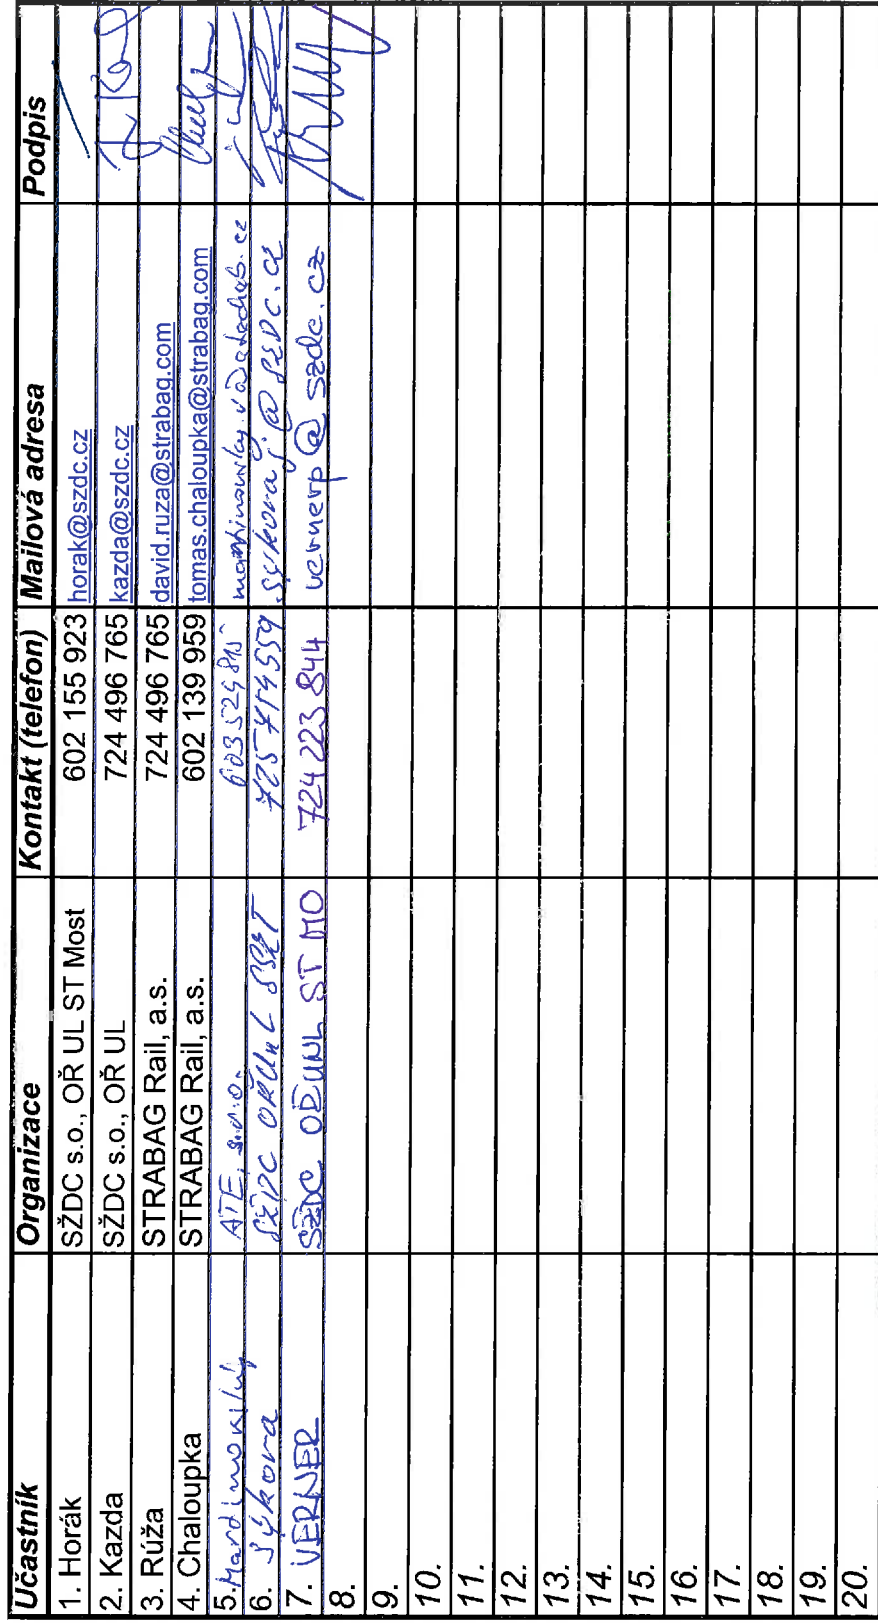 Účastník Organizace Kontakt (telefon) Mailová adresa Podpis
1. Horák SŽDC s.o., OŘ UL ST Most 602 155 923 horak@szdc.cz
2. Kazda SŽDC s.o., OŘ UL 724 496 765 kazda@szdc.cz
3. Rúža STRABAG Rail, a.s. 724 496 765 david.ruza@strabag.com
4. Chaloupka STRABAG Rail, a.s. 602 139 959 tomas.chaloupka@strabag.com
5. ATE, s.r.o.
6. Sýkora SŽDC 725 719 559 sykoraj@szdc.cz
7. VERNER SŽDC OŘ UNL ST MO 724 223 844 vernerp@szdc.cz
8.
9.
10.
11.
12.
13.
14.
15.
16.
17.
18.
19.
20.